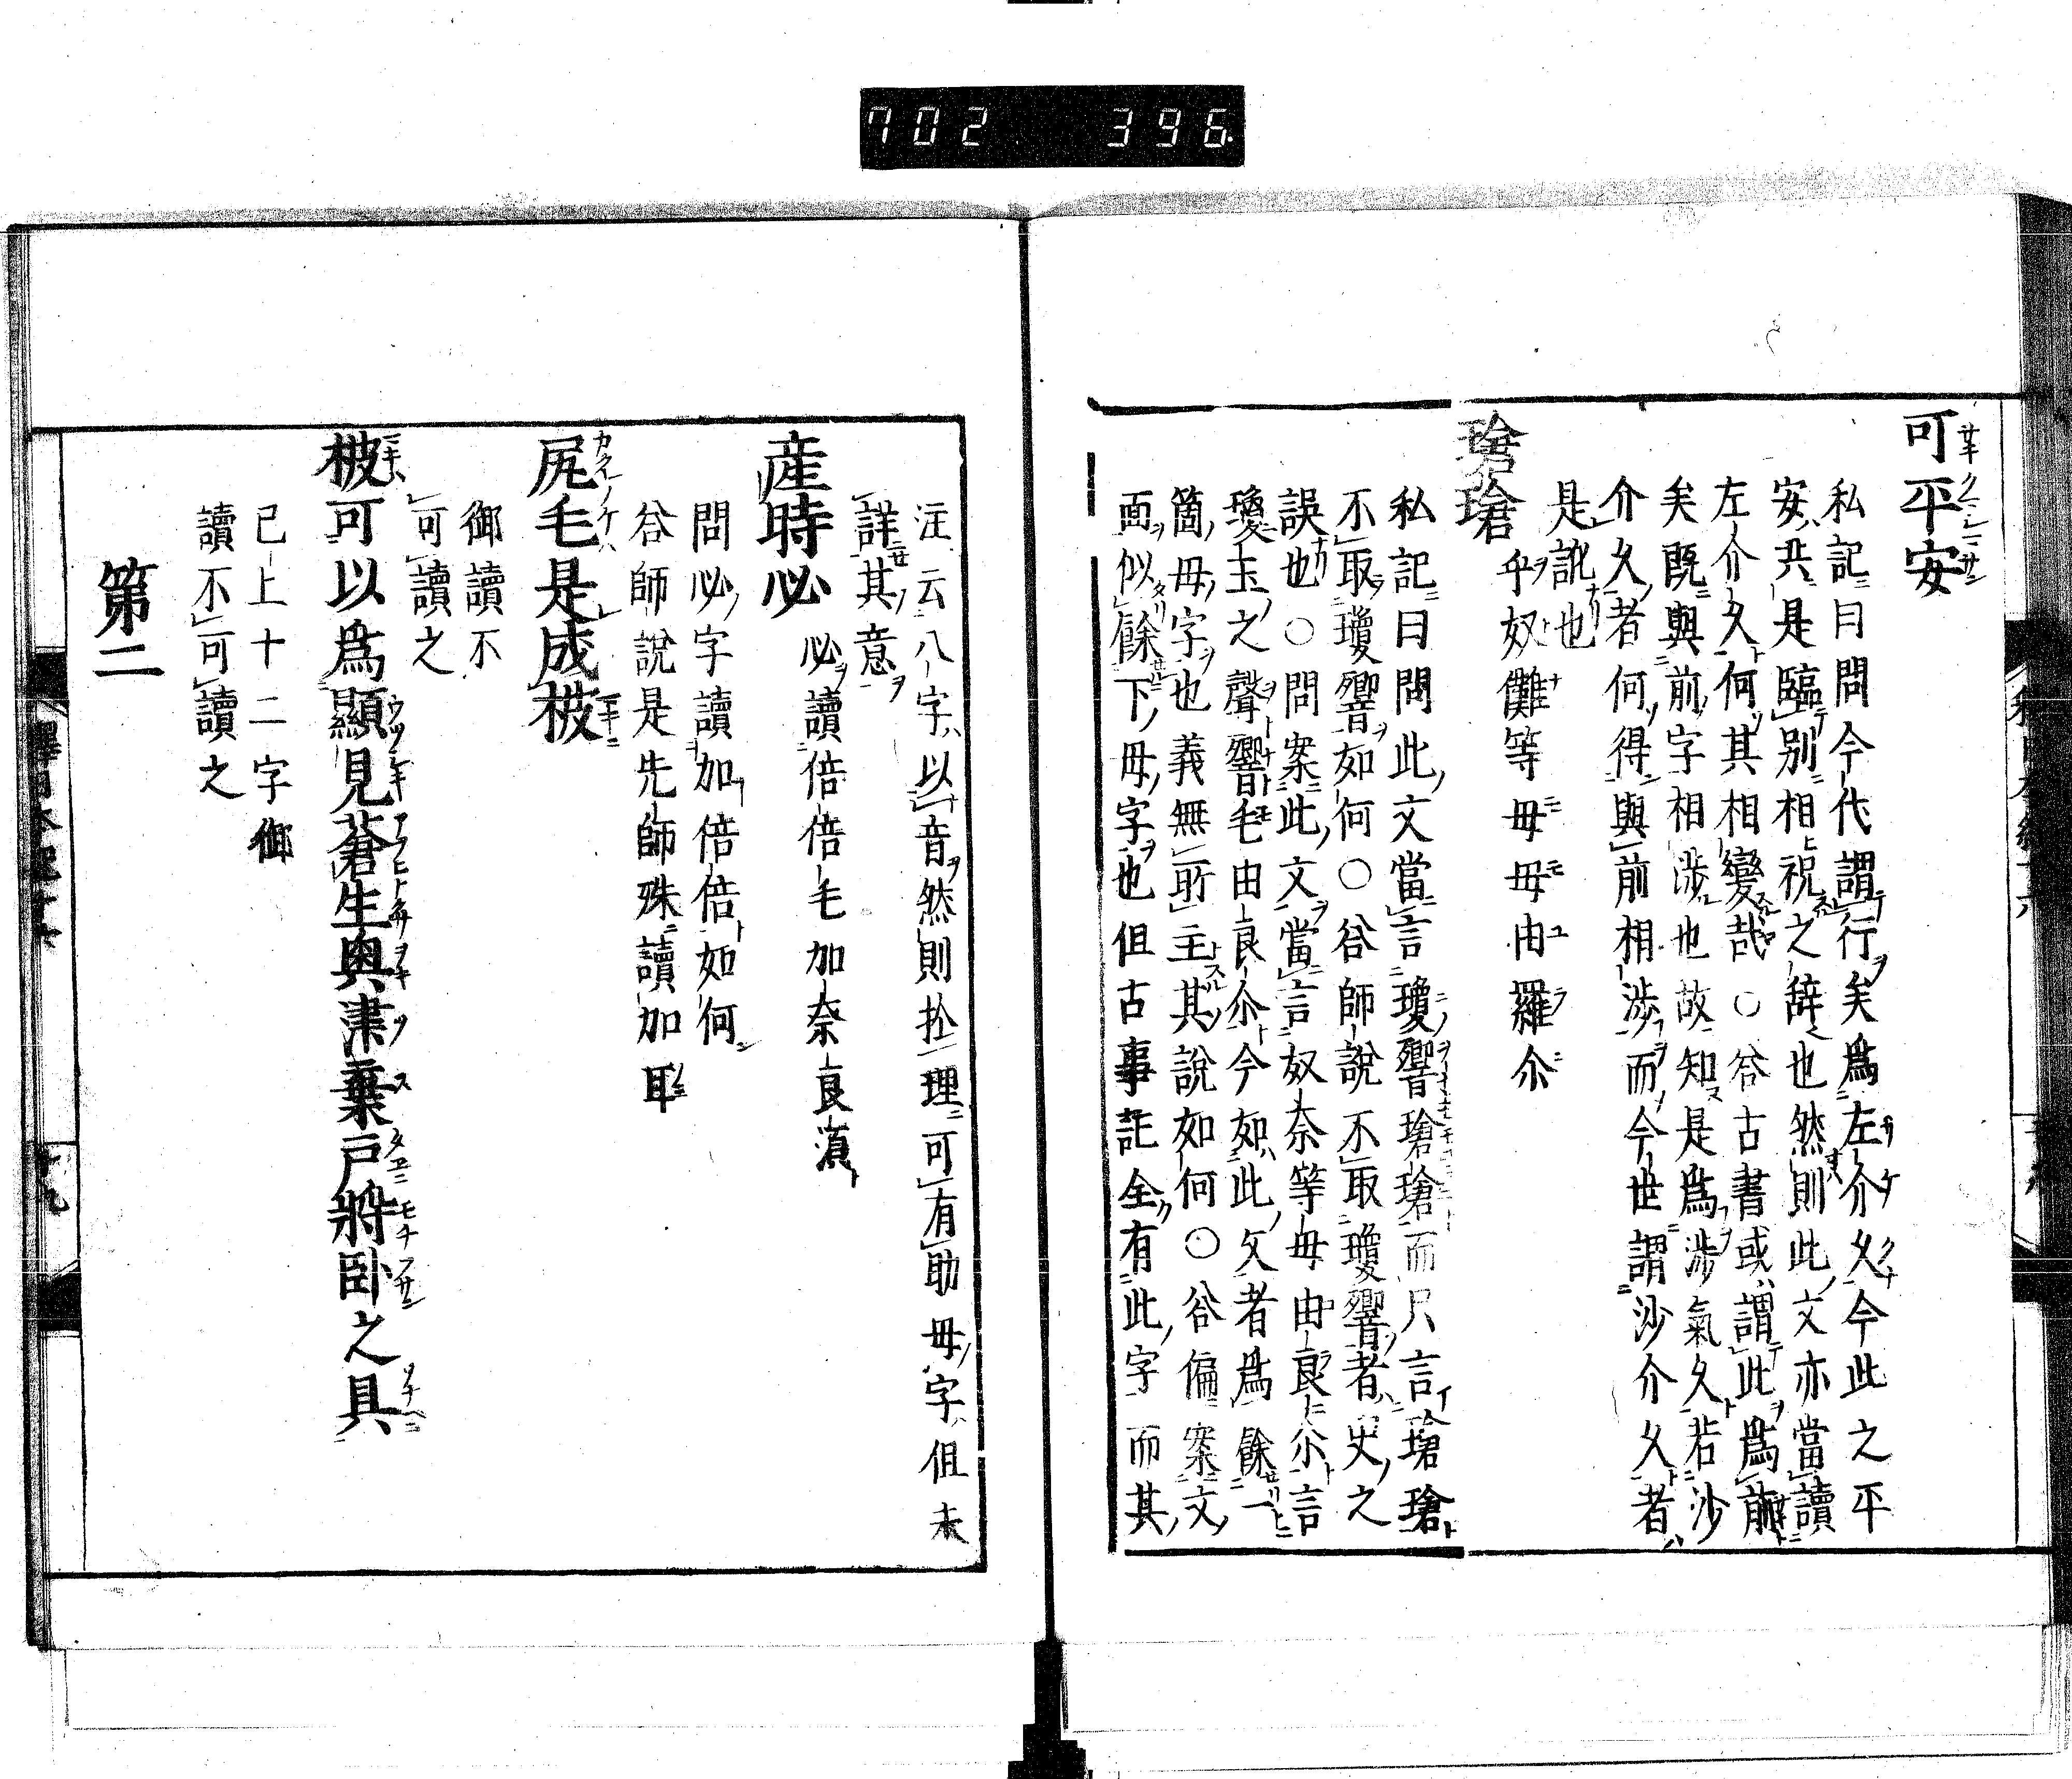 702 396
可平安
私記曰問今代謂行矣爲左介久今此之平
安共是臨別相祝之辞也然則此文亦當讀
左介久何其相變哉○答古書或謂此爲前
矣既與前字相渉也故知是爲渉氣久若沙
介久者何得與前相渉而今世謂沙介久者
是訛也
瑲瑲 乎奴儺等母母由羅尒
私記曰問此文當言瓊響瑲瑲而只言瑲瑲
不取瓊響如何○答師說不取瓊響者史之
誤也○問案此文當言奴奈等母由良尒言
瓊玉之聲響毛由良尒今如此文者爲餘一
箇母字也義無所主其說如何○答偏案文
面似餘下母字也但古事記全有此字而其
注云八字以音然則於理可有助母字但未
詳其意
産時必 必讀倍倍毛加奈良濵
問必字讀加倍倍如何
答師說是先師殊讀加耳
尻毛是成柀
御讀不
可讀之
柀可以爲顯見蒼生奥津棄戸將卧之具
已上十二字御
讀不可讀之
第二